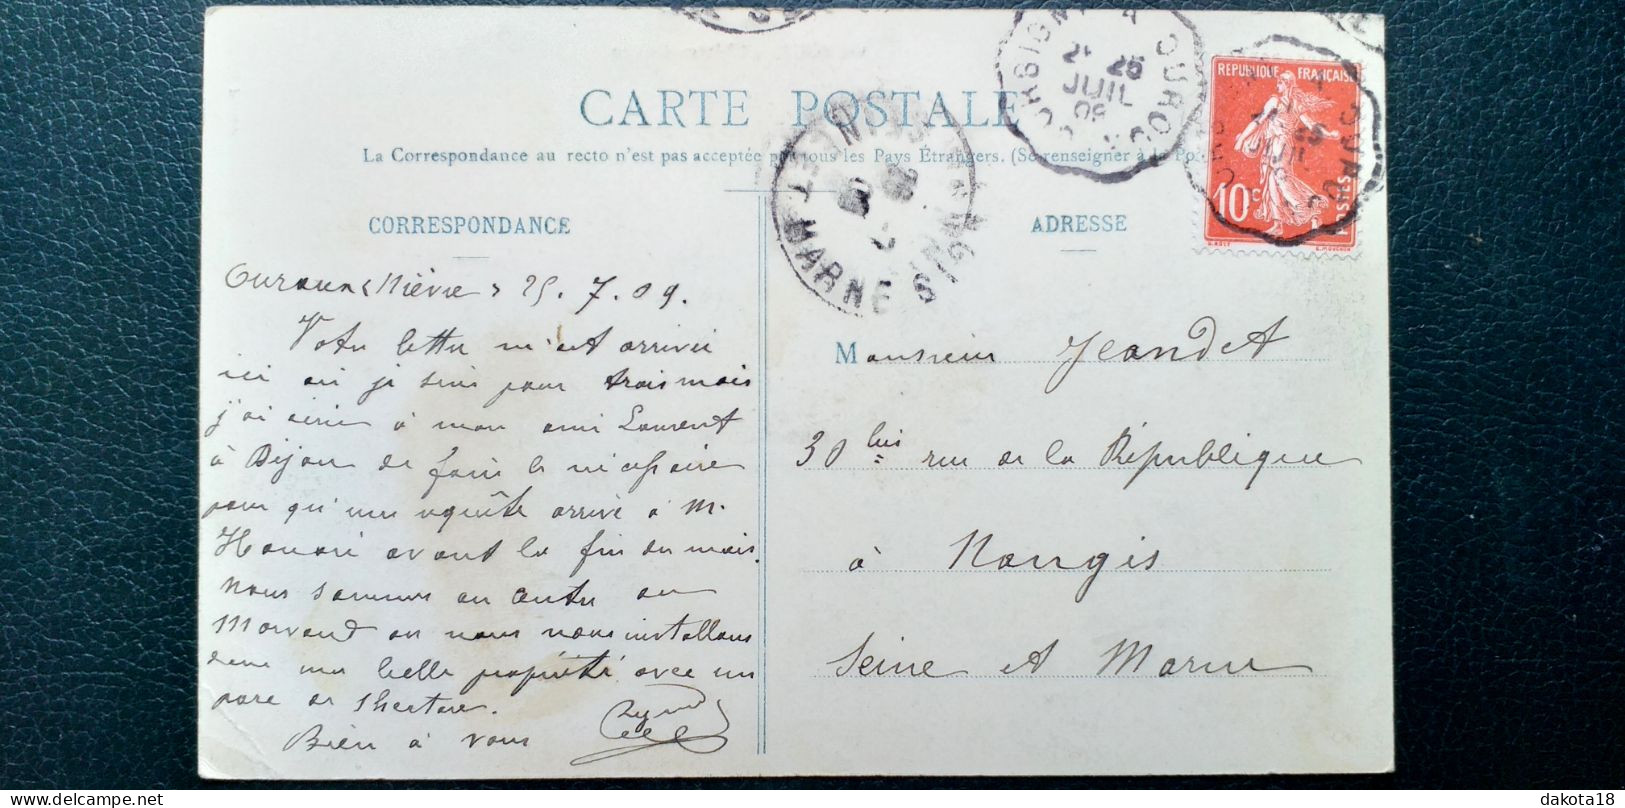 CARTE POSTALE
La Correspondance au recto n'est pas acceptée par tous les Pays Étrangers. (Se renseigner à la Po
CORRESPONDANCE
ADRESSE
CORBIGNY A OUROUX
2E 25
JUIL
09
REPUBLIQUE FRANÇAISE
10c
POSTES
SEINE ET MARNE
Ouroux <Nièvre> 25. 7. 09.
Votre lettre m'est arrivée
ici où je suis pour trois mois
j'ai écrit à mon ami Laurent
à Dijon de faire le nécessaire
pour qu'une enquête arrive à M.
Honoré avant la fin du mois.
nous sommes au centre du
Morvand où nous nous installons
dans une belle propriété avec un
parc de 5 hectares.
Bien à vous
Monsieur Jeandet
30 bis rue de la République
à Nangis
Seine et Marne
dakota18